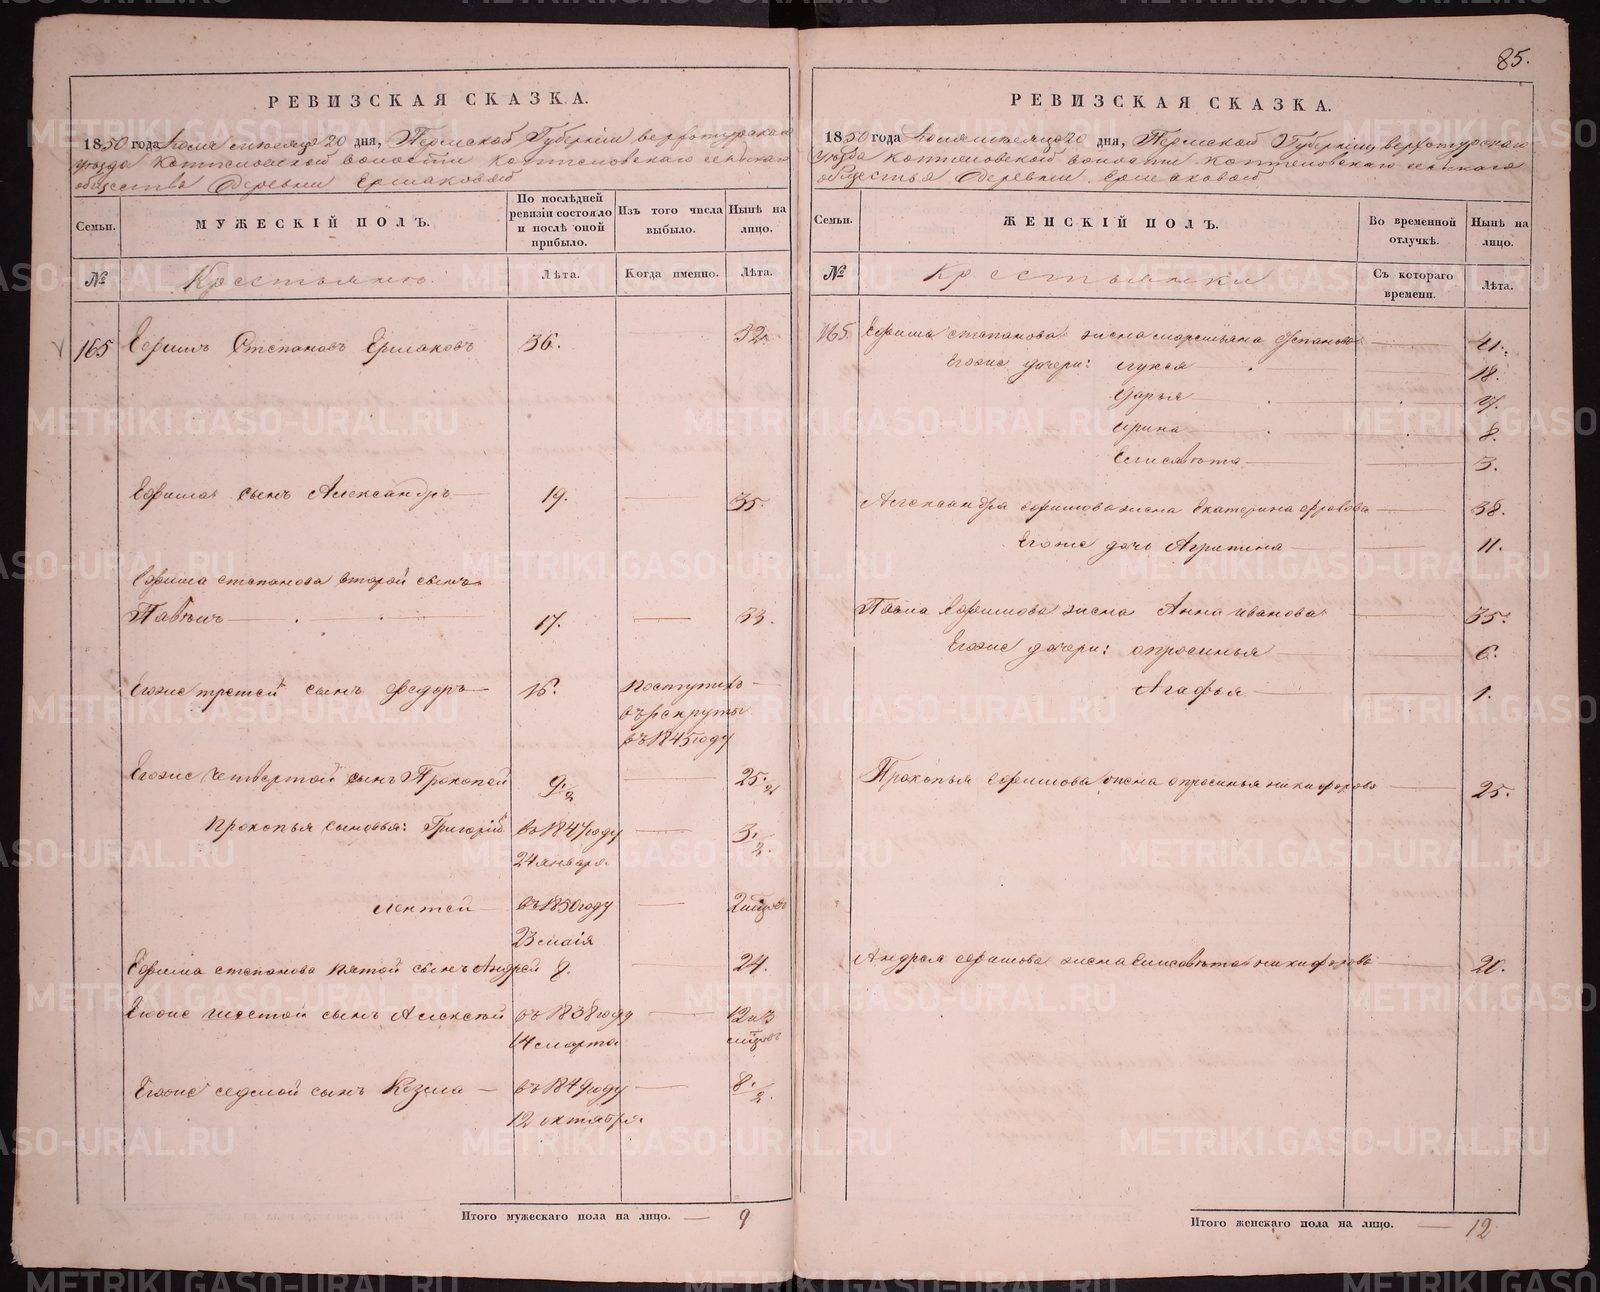 85.
РЕВИЗСКАЯ СКАЗКА.
1850 года Июля месяца 20 дня, Пермской Губернии Верхотурскаго
уезда Коптеловской волости Коптеловскаго сельскаго
общества Деревни Ермаковой
Семьи. МУЖЕСКІЙ ПОЛЪ. По послѣдней ревизіи состояло и послѣ оной прибыло. Изъ того числа выбыло. Нынѣ на лицо.
№ Крестьяне. Лѣта. Когда именно. Лѣта.
165 Ефимъ Степановъ Ермаковъ 36. 52.
Ефима сынъ Александръ 19. 35.
Ефима Степанова второй сынъ
Павелъ 17. 33.
Егоже третей сынъ Федоръ 16. поступилъ
въ рекруты
въ 1845 году
Егоже четвертой сынъ Прокопей 9.½ 25.½
Прокопья сыновья: Григорій въ 1847 году 3.½.
24 января
въ 1850 году
23 маія
Ефима Степанова пятой сынъ Андрей 8. 24.
Егоже шестой сынъ Алексѣй въ 1838 году 12 и 3
14 марта
Егоже седмой сынъ Козма въ 1841 году 8.½.
12 октября
Итого мужескаго пола на лицо. 9
РЕВИЗСКАЯ СКАЗКА.
1850 года Июля месяца 20 дня, Пермской Губернии Верхотурскаго
уезда Коптеловской волости Коптеловскаго сельскаго
общества Деревни Ермаковой
Семьи. ЖЕНСКІЙ ПОЛЪ. Во временной отлучкѣ. Нынѣ на лицо.
№ Крестьянки Съ котораго времени. Лѣта.
165 Ефима Степанова жена Маремьяна 41.
Егоже дочери: Лукья 18.
Дарья
Ирина 8.
Елисавета 3.
Александра Ефимова жена Екатерина Фролова 38.
Егоже дочь Агрипина 11.
Павла Ефимова жена Анна Иванова 35.
Егоже дочери: Опросинья 6.
Агафья 1.
Прокопья Ефимова жена Опросинья Никифорова 25.
Андрея Ефимова жена Елисавета Никифорова 20.
Итого женскаго пола на лицо. 12
METRIKI.GASO-URAL.RU